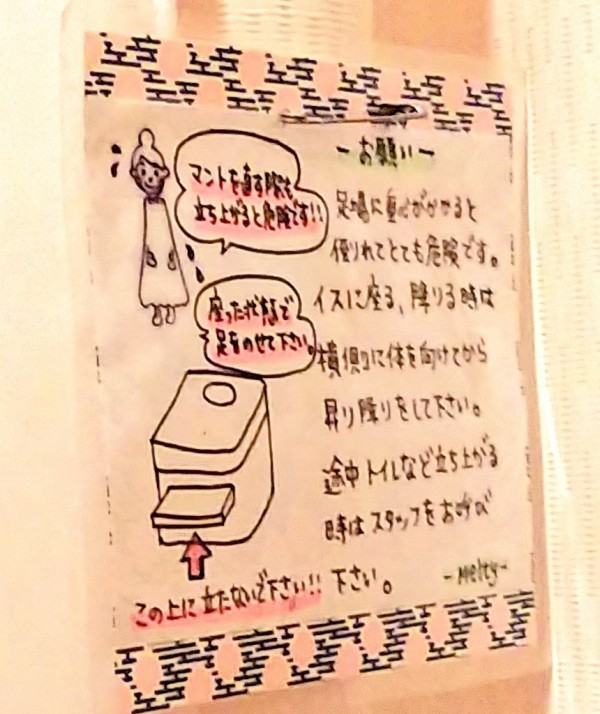 －お願い－
足場に重心がかかると
倒れてとても危険です。
イスに座る、降りる時は
横側に体を向けてから
昇り降りをして下さい。
途中トイレなど立ち上がる
時はスタッフをお呼び
下さい。
－Melty－
マントを直す際も
立ち上がると危険です!!
座った状態で
足をのせて下さい。
この上に立たないで下さい!!